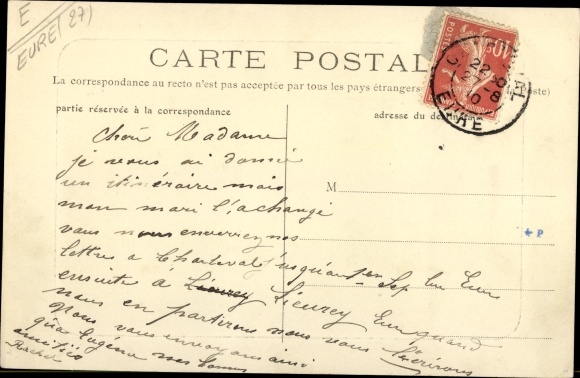 E
EURE (27)
CARTE POSTAL
La correspondance au recto n'est pas acceptée par tous les pays étrangers
partie réservée à la correspondance
adresse du de
POSTES
10
22-8
10
EURE
M
P
Chère Madame
je vous ai donné
un itinéraire mais
mon mari l'a changé
vous nous enverrez nos
lettres a Charleval jusqu'au 1er Sep Eure
ensuite à Lieurey Eure quand
nous en partirons nous vous écrirons
Nous vous envoyons ainsi
qu'a Eugénie nos bonnes
amitiés
Rachel